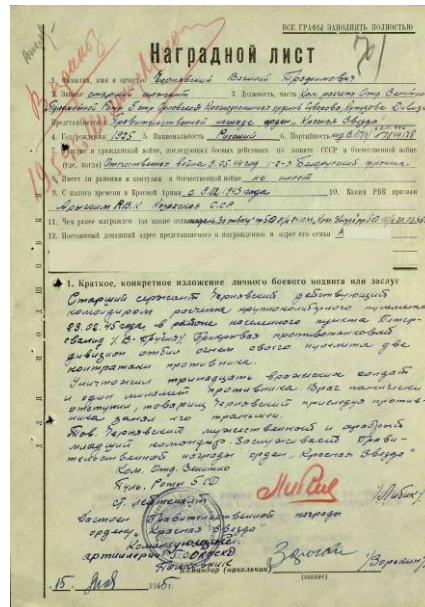 ВСЕ ГРАФЫ ЗАПОЛНЯТЬ ПОЛНОСТЬЮ
Наградной лист
1. Фамилия, имя и отчество Чернявский Василий Трофимович
2. Звание старший сержант 3. Должность, часть Ком. расчета Отд. Зенитно
Пулеметной Роты 5 стр. Орловской Краснознаменной орденов Суворова Кутузова Дивизии
Представляется к Правительственной награде орден „Красная Звезда“
4. Год рождения 5. Национальность Русский 6. Партийность
7. Участие в гражданской войне, последующих боевых действиях по защите СССР и отечественной войне
(где, когда) Отечественная война с 9.05.44 год. 1-2-3 Белорусский фронта.
8. Имеет ли ранения и контузии в отечественной войне не имеет
9. С какого времени в Красной Армии с 9.02.1943 года 10. Каким РВК призван
РВК Казахская ССР
11. Чем ранее награжден (за какие отличия)
12. Постоянный домашний адрес представляемого к награждению и адрес его семьи
1. Краткое, конкретное изложение личного боевого подвига или заслуг
Старший сержант Чернявский действующий
командиром расчета крупнокалиберного пулемета
23.02.45 года, в районе населенного пункта Питер-
свальд /В-Пруссия/ Прикрывая противотанковый
дивизион отбил огнем своего пулемета две
контратаки противника.
Уничтожил тринадцать вражеских солдат
и один миномет противника. Враг панически
отступил, товарищ Чернявский преследуя против-
ника занял его траншеи.
Тов. Чернявский мужественный и храбрый
младший командир. Заслуживает Прави-
тельственной награды орден „Красная Звезда“
Ком. Отд. Зенитно
Пуль. Роты 5 СД
ст. лейтенант /Либик/
Достоин Правительственной награды
ордену „Красная Звезда“
Командующий
артиллерией 5
Полковник /Зорькин/
Командир (начальник)
(звание)
15. 1945г.